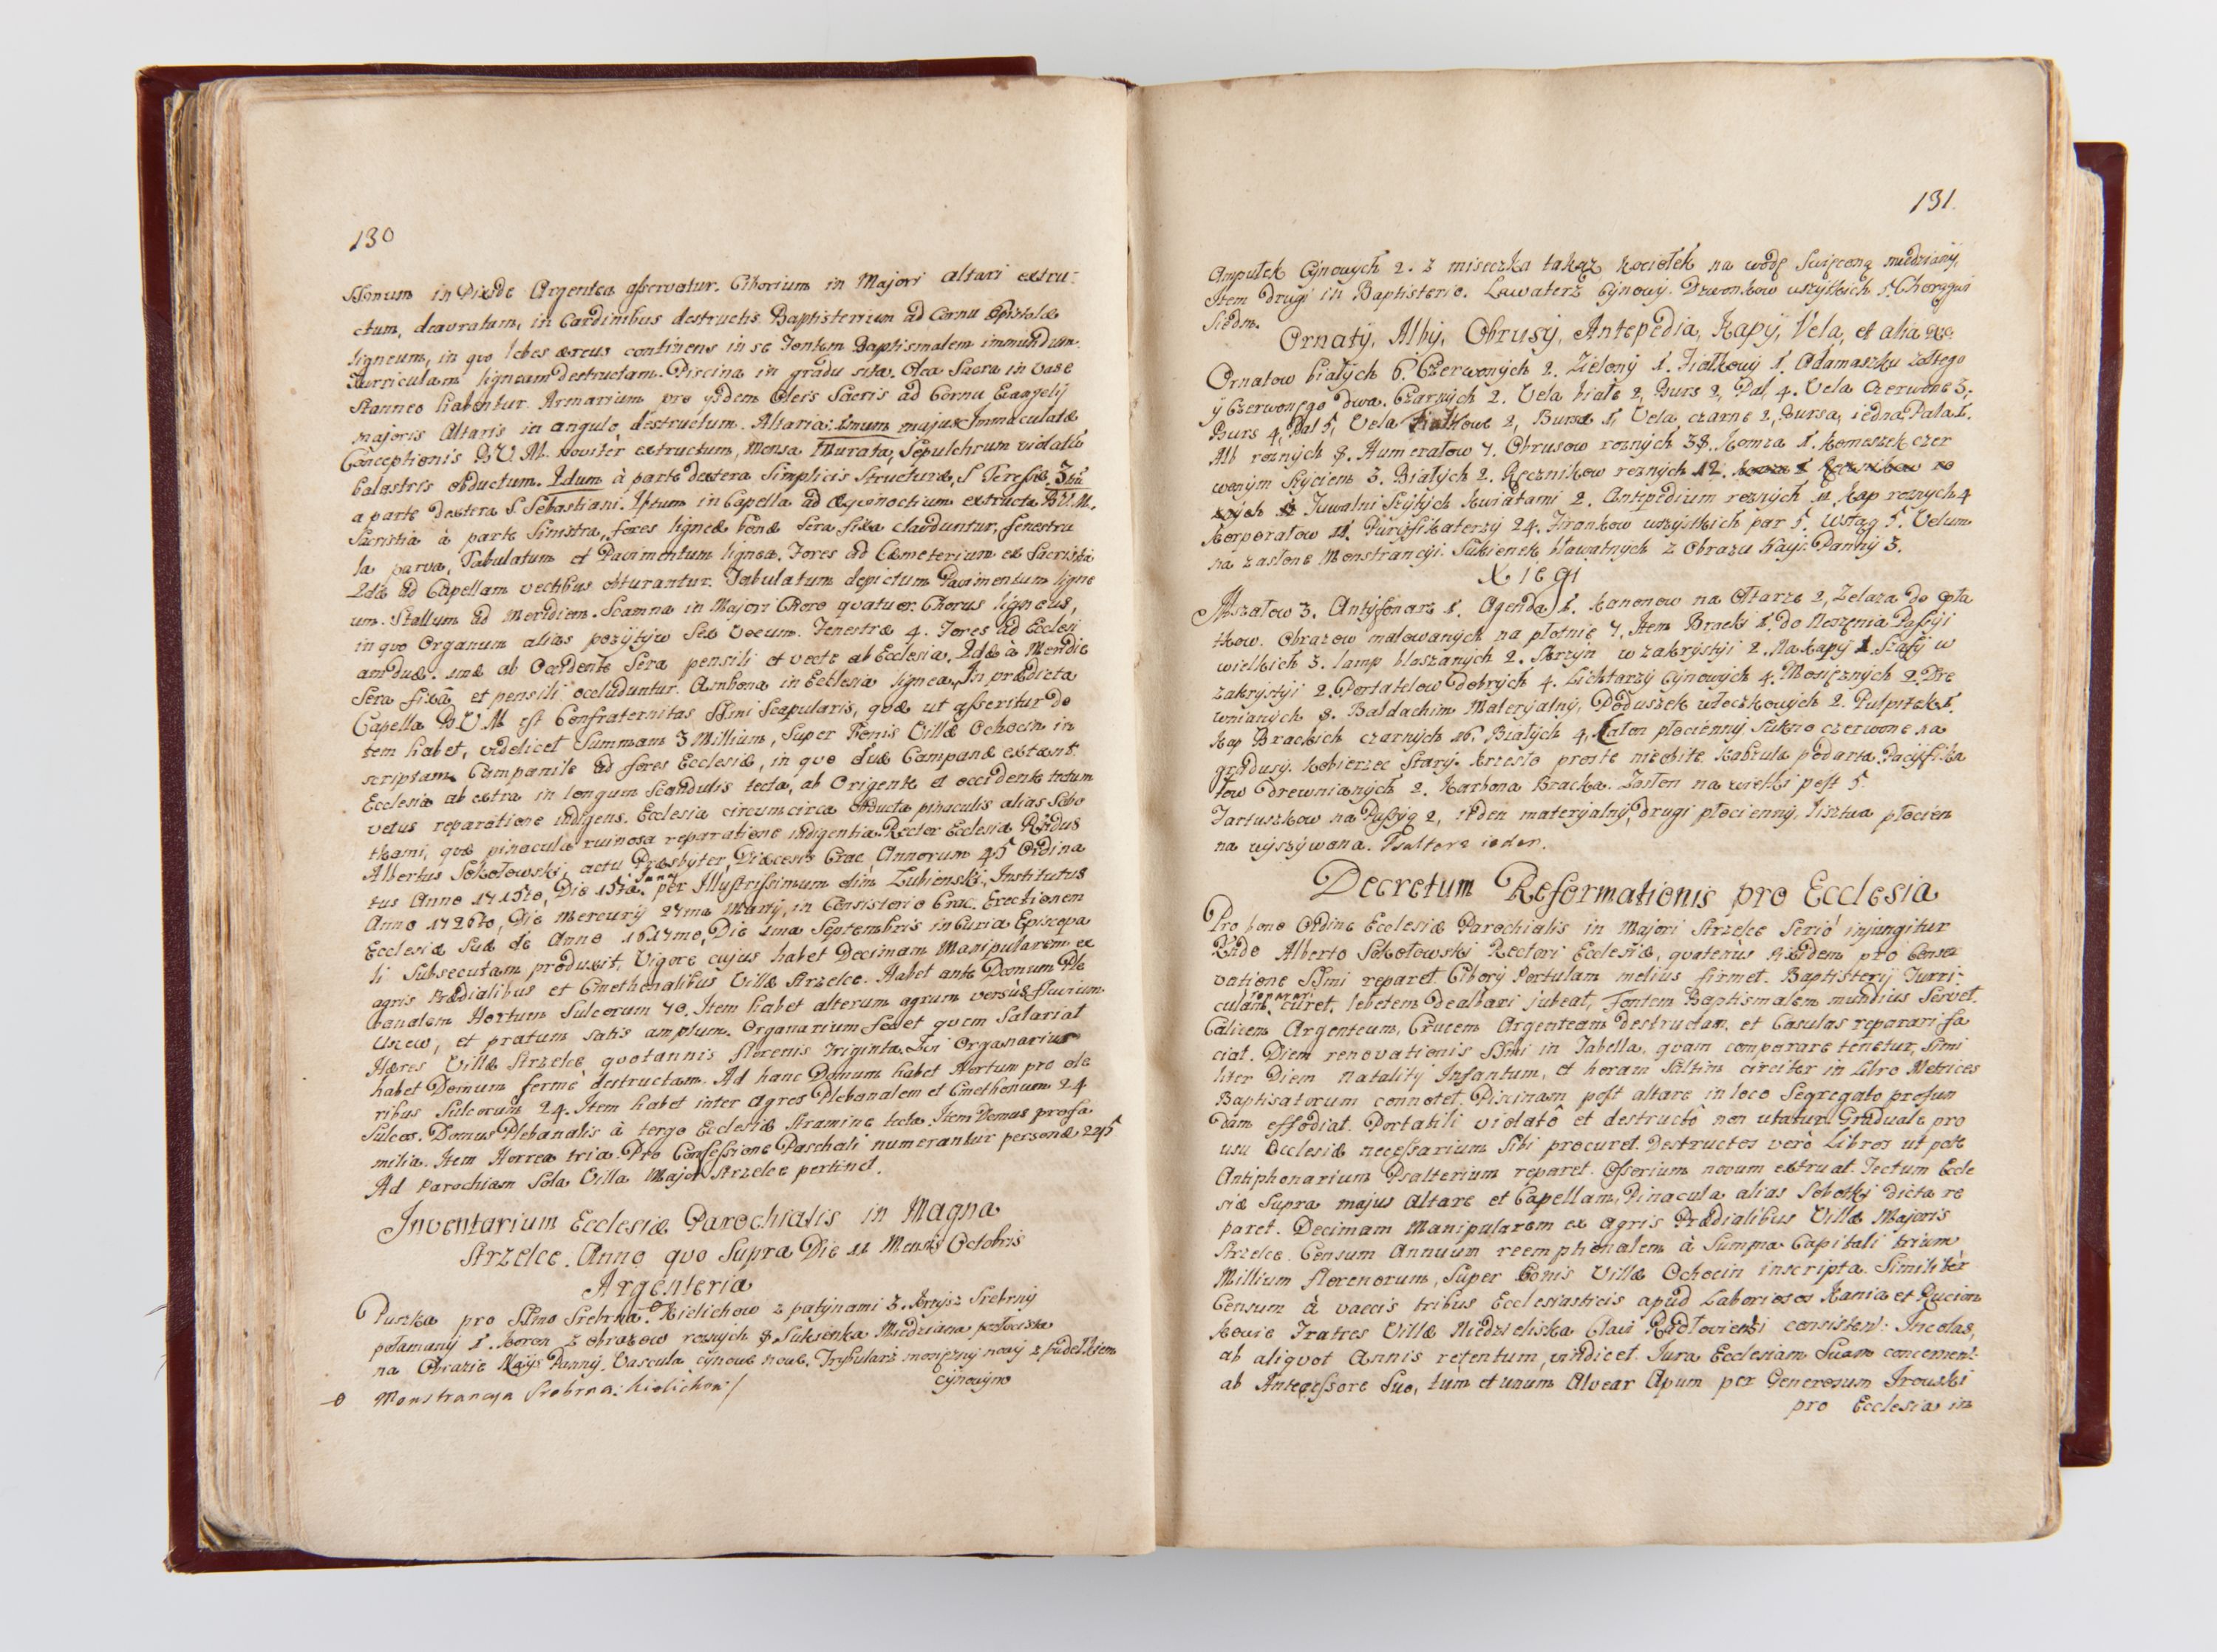 130
SSmum in Pixide Argentea asservatur. Ciborium in Majori altari extru-
ctum, deauratum, in Cardinibus destructis. Baptisterium ad Cornu Epistolæ
ligneum, in quo lebes æreus continens in se Fontem Baptismalem immundum
Turriculam ligneam destructam. Piscina in gradu sita. Olea Sacra in vase
Stanneo habentur. Armarium pro ijsdem Oleis Sacris ad Cornu Evangelij
majoris Altaris in angulo destructum. Altaria: 1mum majus Immaculatæ
Conceptionis B.V.M. noviter extructum, Mensa Murata, Sepulchrum violatū
balastris obductum. 2dum à parte dextera Simplicis Structuræ, S. Teresiæ 3tiū
a parte dextera S. Sebastiani. 4tum in Capella ad æqvinoctium extructa B.V.M.
Sacristia à parte Sinistra, fores ligneæ bonæ Sera fixa clauduntur, fenestru
la parva, Tabulatum et Pavimentum lignea. Fores ad Cæmeterium ex Sacristia
2dæ ad Capellam vectibus obturantur. Tabulatum depictum Pavimentum ligne
um. Stallum ad Meridiem. Scamna in Majori Choro quatuor. Chorus ligneus,
in quo Organum alias pozytyw Sex Vocum. Fenestræ 4. Fores ad Ecclesi
am duæ. unæ ab Occidente Sera pensili et vecte ab Ecclesia, 2dæ à Meridie
Sera fixâ et pensili occluduntur. Ambona in Ecclesia lignea. In prædicta
Capella B.V.M. est Confraternitas SSmi Scapularis, quæ ut asseritur do
tem habet, videlicet Summam 3 Millium, Super Bonis Villæ Ochocin in
scriptam. Campanile ad fores Ecclesiæ, in quo duæ Campanæ extant.
Ecclesia ab extra in longum Scandulis tecta, ab Origente et occidente tectum
vetus reparatione indigens. Ecclesia circumcirca obducta pinaculis alias Sobo
tkami, quæ pinacula ruinosa reparatione indigentia. Rector Ecclesiæ Rndus
Albertus Sokołowski, actu Præsbyter, Diæcesis Crac. Annorum 45 Ordina
tus Anno 1715to, Die 15ta Junij per Illustrissimum olim Łubienski, Institutus
Anno 1726to, Die Mercurij 27ma Martij, in Consistorio Crac. Erectionem
Ecclesiæ Suæ de Anno 1617mo, Die 1ma Septembris in Curia Episcopa
li Subsecutam produxit, Vigore cujus habet Decimam Manipularem ex
agris Prædialibus et Cmethonalibus Villæ Strzelce. Habet ante Domum Ple
banalem Hortum Sulcorum 70. Item habet alterum agrum versùs fluvium
Uszew, et pratum Satis amplum. Organarium fovet quem Salariat
Hæres Villæ Strzelce quotannis florenis triginta. Qui Organarius
habet Domum fermè destructam. Ad hanc Domum habet Hortum pro ole
ribus Sulcorum 24. Item habet inter agros Plebanalem et Cmethonum 24
Sulcos. Domus Plebanalis à tergo Ecclesiæ Stramine tecta. Item Domus pro fa
milia. Item Horrea tria. Pro Confessione Paschali numerantur personæ 245
Ad Parochiam Sola Villa Major Strzelce pertinet.
Inventarium Ecclesiæ Parochialis in Magna
Strzelce. Anno quo Supra Die 11 Mensis Octobris
Argenteria
Puszka pro SSmo Srebrna. Kielichow z patynami 3. Krzysz Srebrny
połamany 1. Koron z obrazow roznych 8 Suksienka Miedziana pozłocista
na Obrazie Nayś: Panny. Vascula cynowe nowe. Trybularz mosiezny nowy z pudełkiem
cynowym
Monstrancya Srebrna: kielichow:/
131.
Ampułek Cynowych 2. z miseczka takąz kociołek na wodę Swięconą miedziany,
Item drugi in Baptisterio. Lawaterz Cynowy. Dzwonkow wszytkich 5. Chorągwi
Siedm.
Ornaty, Alby, Obrusy, Antepedia, Kapy, Vela, et alia
Ornatow białych 6. Czerwonych 2. Zielony 1. Fiałkowy 1. Adamaszku zołtego
y Czerwonego dwa. Czarnych 2. Vela białe 2, Burs 2, Pal 4. Vela Czerwone 3,
Burs 4, Pal 5, Vela Fiałkowe 2, Bursa 1, Vela czarne 2, Bursa, iedna, Pala 1.
Alb roznych 8. Humerałow 7. Obrusow roznych 38. Komza 1. Komeszek czer
wonym Szyciem 3. Białych 2. Ręcznikow roznych 12.
Tuwalni Szytych kwiatami 2. Antipedium roznych 11. Kap roznych 4
Korporałow 11. Puryfikaterzy 24. Firankow wszystkich par 5. Wstąg 5. Velum
na zasłone Monstrancyi. Sukienek bławatnych z Obrazu Nayś: Panny 3.
Xięgi
Mszałow 3. Antyfonarz 1. Agenda 1. Kanonow na Ołtarze 2, Zelaza do Opła
tkow. Obrazow malowanych na płotnie 7, Item Bracki 1. do Noszenia Passyi
wielkich 3. lamp blaszanych 2. Skrzyn w zakrystyi 2. Na kapy 1. Szafy w
zakrystyi 2. Portatelow dobrych 4. Lichtarzy Cynowych 4. Mosięznych 2. Dre
wnianych 8. Baldachim Materyalny, Poduszek włoczkowych 2. Pulpitek 1.
Kap Brackich czarnych 16. Białych 4, Całon płocienny. Sukno czerwone na
gradusy. Kobierzec Stary. Krzesło proste nieobite. Kabzula podarta. Pacyfika
łow drewnianych 2. Karbona Bracka. Zasłon na wielki post 5.
Fartuszkow na Passyą 2, ieden materyalny, drugi płocienny, lisztwa płocien
na wyszywana. Psałterz ieden.
Decretum Reformationis pro Ecclesia
Pro bono Ordine Ecclesiæ Parochialis in Majori Strzelce Seriò injungitur
Rndo Alberto Sokołowski Rectori Ecclesiæ, quatenùs Pixidem pro Conser
vatione SSmi reparet. Ciborij Portulam meliùs firmet. Baptisterij Turri-
culam reparari curet, lebetem dealbari jubeat, Fontem Baptismalem mundius Servet.
Calicem Argenteum, Crucem Argenteam destructam, et Casulas reparari fa
ciat. Diem renovationis SSmi in Tabella, quam comparare tenetur, Simi
liter Diem Natalitij Infantum, et horam Saltim circiter in Libro Metrices
Baptisatorum connotet. Piscinam post altare in loco Segregato profun
dam effodiat. Portatili violatô et destructô non utatur. Graduale pro
usu Ecclesiæ necessarium Sibi procuret. Destructos verò Libros ut pote
Antiphonarium Psalterium reparet. Ossorium novum extruat. Tectum Eccle
siæ Supra majus Altare et Capellam, Pinacula alias Sobotki dicta re
paret. Decimam Manipularem ex agris Prædialibus Villæ Majoris
Strzelce. Censum Annuum reemptionalem à Summa Capitali trium
Millium florenorum, Super bonis Villæ Ochocin inscripta. Similiter
Censum à vaccis tribus Ecclesiasticis apud Laboriosos Kania et Rucion
kowie Fratres Villæ Niedzieliska Clavi Radłoviensi consisten: Incolas,
ab aliquot Annis retentum, vindicet. Jura Ecclesiam Suam concernent:
ab Antecessore Suo, tùm et unum Alvear Apum per Generosum Trouski
pro Ecclesia in